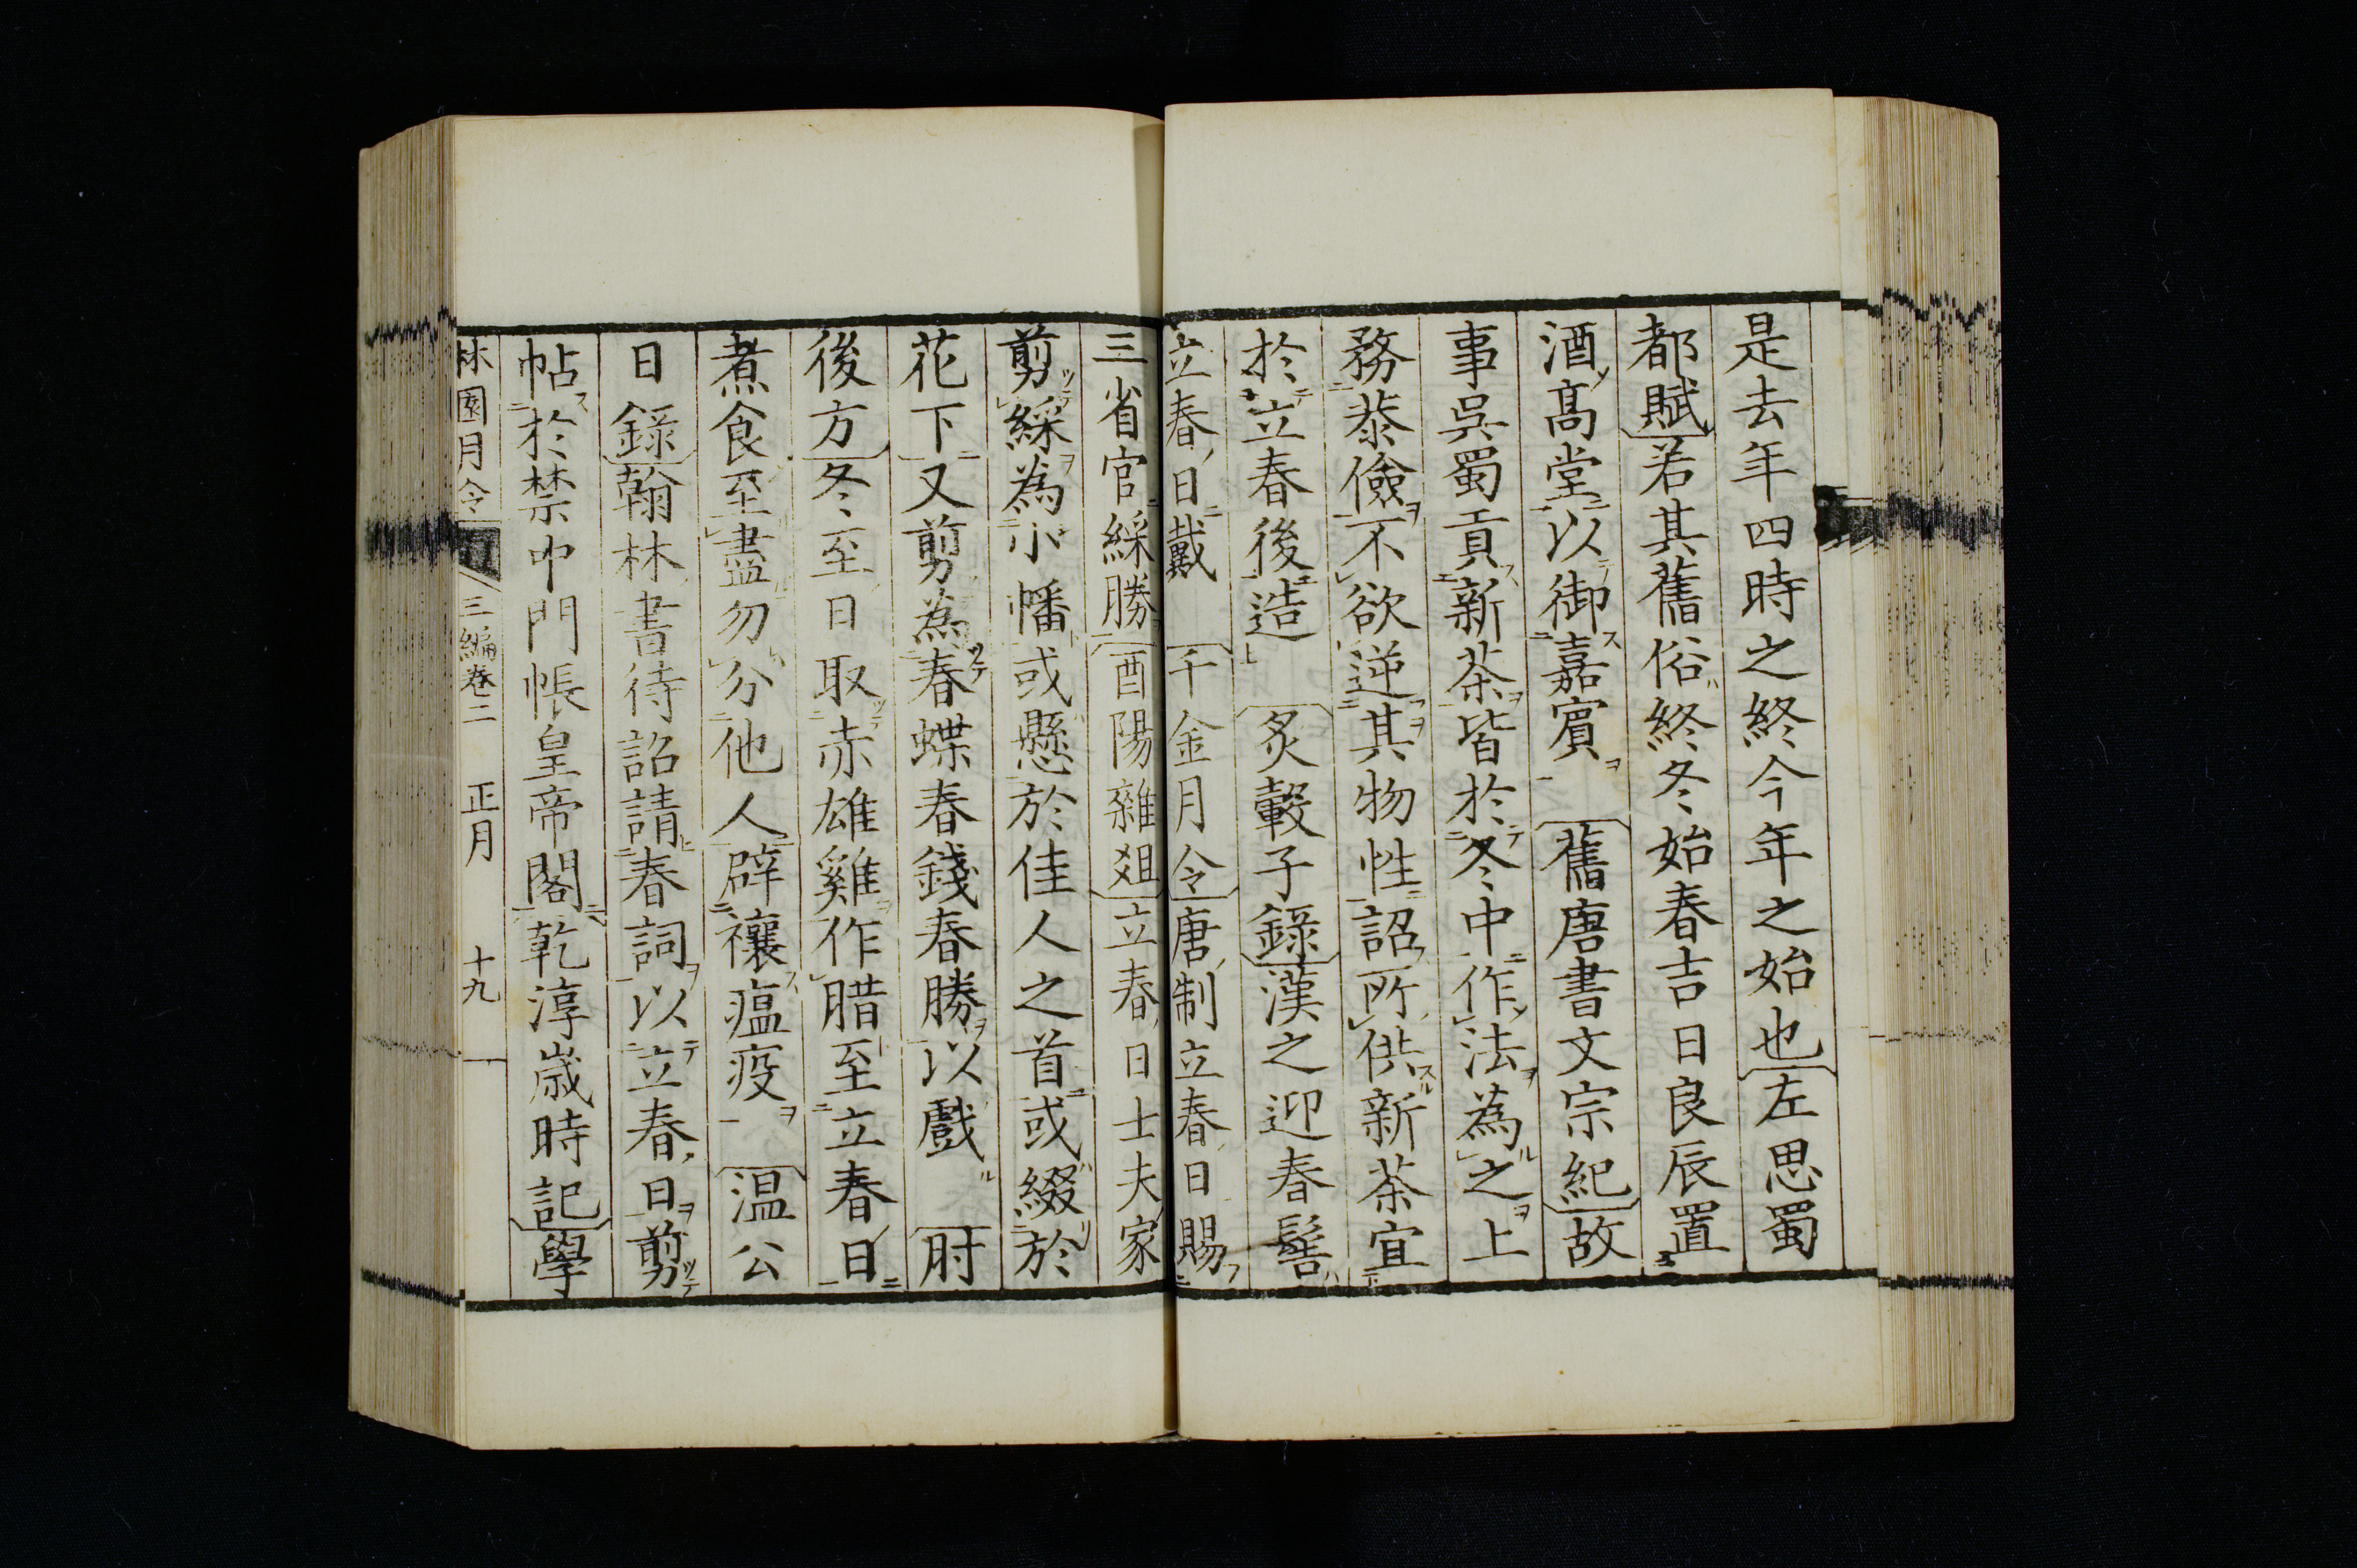 是去年四時之終今年之始也左思蜀
都賦若其舊俗終冬始春吉日良辰置
酒高堂以御嘉賓 舊唐書文宗紀故
事吳蜀貢新茶皆於冬中作法為之上
務恭儉不欲逆其物性詔所供新茶宜
於立春後造 炙轂子錄漢之迎春髻
立春日戴 千金月令唐制立春日賜
三省官綵勝酉陽雜爼立春日士夫家
剪綵為小幡或懸於佳人之首或綴於
花下又剪為春蝶春錢春勝以戲 肘
後方冬至日取赤雄雞作腊至立春日
煮食至盡勿分他人辟禳瘟疫 温公
日錄翰林書待詔請春詞以立春日剪
帖於禁中門帳皇帝閣乾淳歳時記學
林園月令 三編卷二 正月 十九